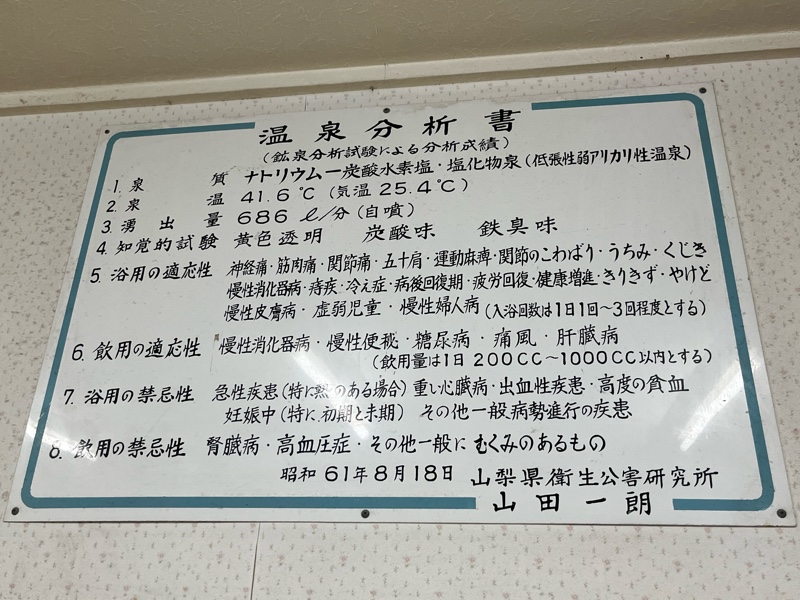 温泉分析書
(鉱泉分析試験による分析成績)
1. 泉質 ナトリウムー炭酸水素塩・塩化物泉(低張性弱アリカリ性温泉)
2. 泉温 41.6℃(気温25.4℃)
3. 湧出量 686ℓ/分(自噴)
4. 知覚的試験 黄色透明 炭酸味 鉄臭味
5. 浴用の適応性 神経痛・筋肉痛・関節痛・五十肩・運動麻痺・関節のこわばり・うちみ・くじき
慢性消化器病・痔疾・冷え症・病後回復期・疲労回復・健康増進・きりきず・やけど
慢性皮膚病・虚弱児童・慢性婦人病(入浴回数は1日1回〜3回程度とする)
6. 飲用の適応性 慢性消化器病・慢性便秘・糖尿病・痛風・肝臓病
(飲用量は1日200CC〜1000CC以内とする)
7. 浴用の禁忌性 急性疾患(特に熱のある場合)重し心臓病・出血性疾患・高度の貧血
妊娠中(特に初期と末期) その他一般病勢進行の疾患
8. 飲用の禁忌性 腎臓病・高血圧症・その他一般にむくみのあるもの
昭和61年8月18日 山梨県衛生公害研究所
山田一朗